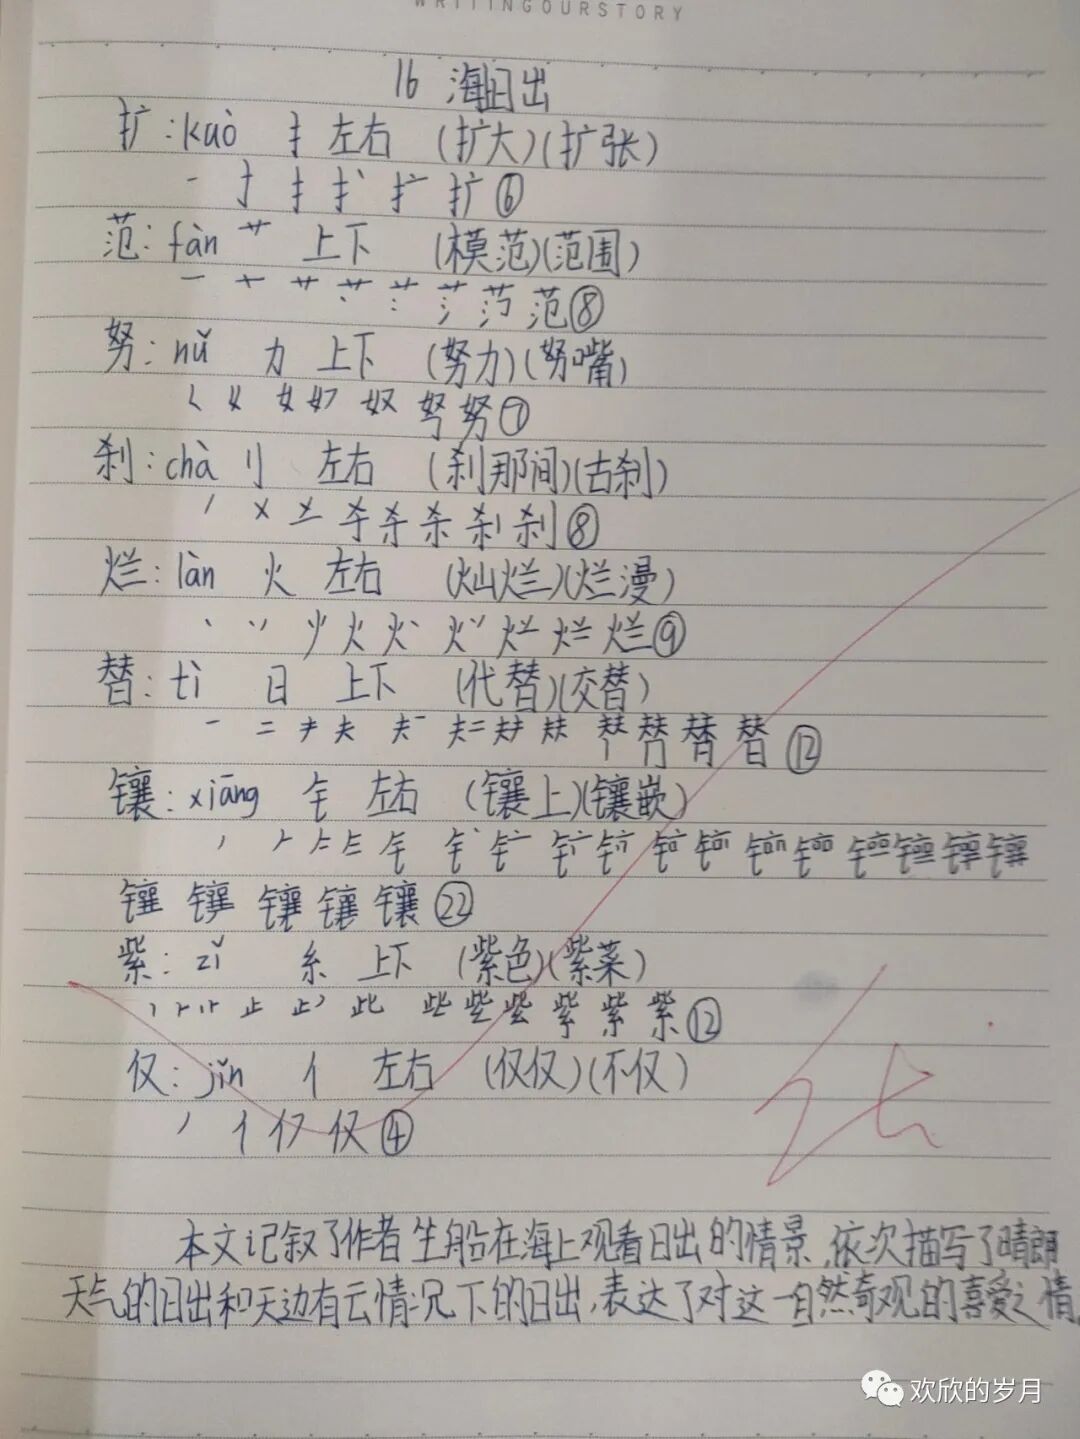 WRITINGOURSTORY
16 海上日出
扩:kuò 扌 左右 (扩大)(扩张)
一 扌 扩 ⑥
范:fàn 艹 上下 (模范)(范围)
一 十 艹 范 ⑧
努:nǔ 力 上下 (努力)(努嘴)
く 女 奴 努 ⑦
刹:chà 刂 左右 (刹那间)(古刹)
丿 㐅 杀 刹 刹 ⑧
烂:làn 火 左右 (灿烂)(烂漫)
丶 丷 火 烂 烂 烂 ⑨
替:tì 日 上下 (代替)(交替)
一 二 夫 替 ⑫
镶:xiāng 钅 左右 (镶上)(镶嵌)
丿 钅
镶 镶 ㉒
紫:zǐ 糸 上下 (紫色)(紫菜)
丨 止 此 些 紫 紫 ⑫
仅:jǐn 亻 左右 (仅仅)(不仅)
丿 亻 仅 仅 ④
本文记叙了作者坐船在海上观看日出的情景,依次描写了晴朗
天气的日出和天边有云情况下的日出,表达了对这一自然奇观的喜爱之情。
欢欣的岁月